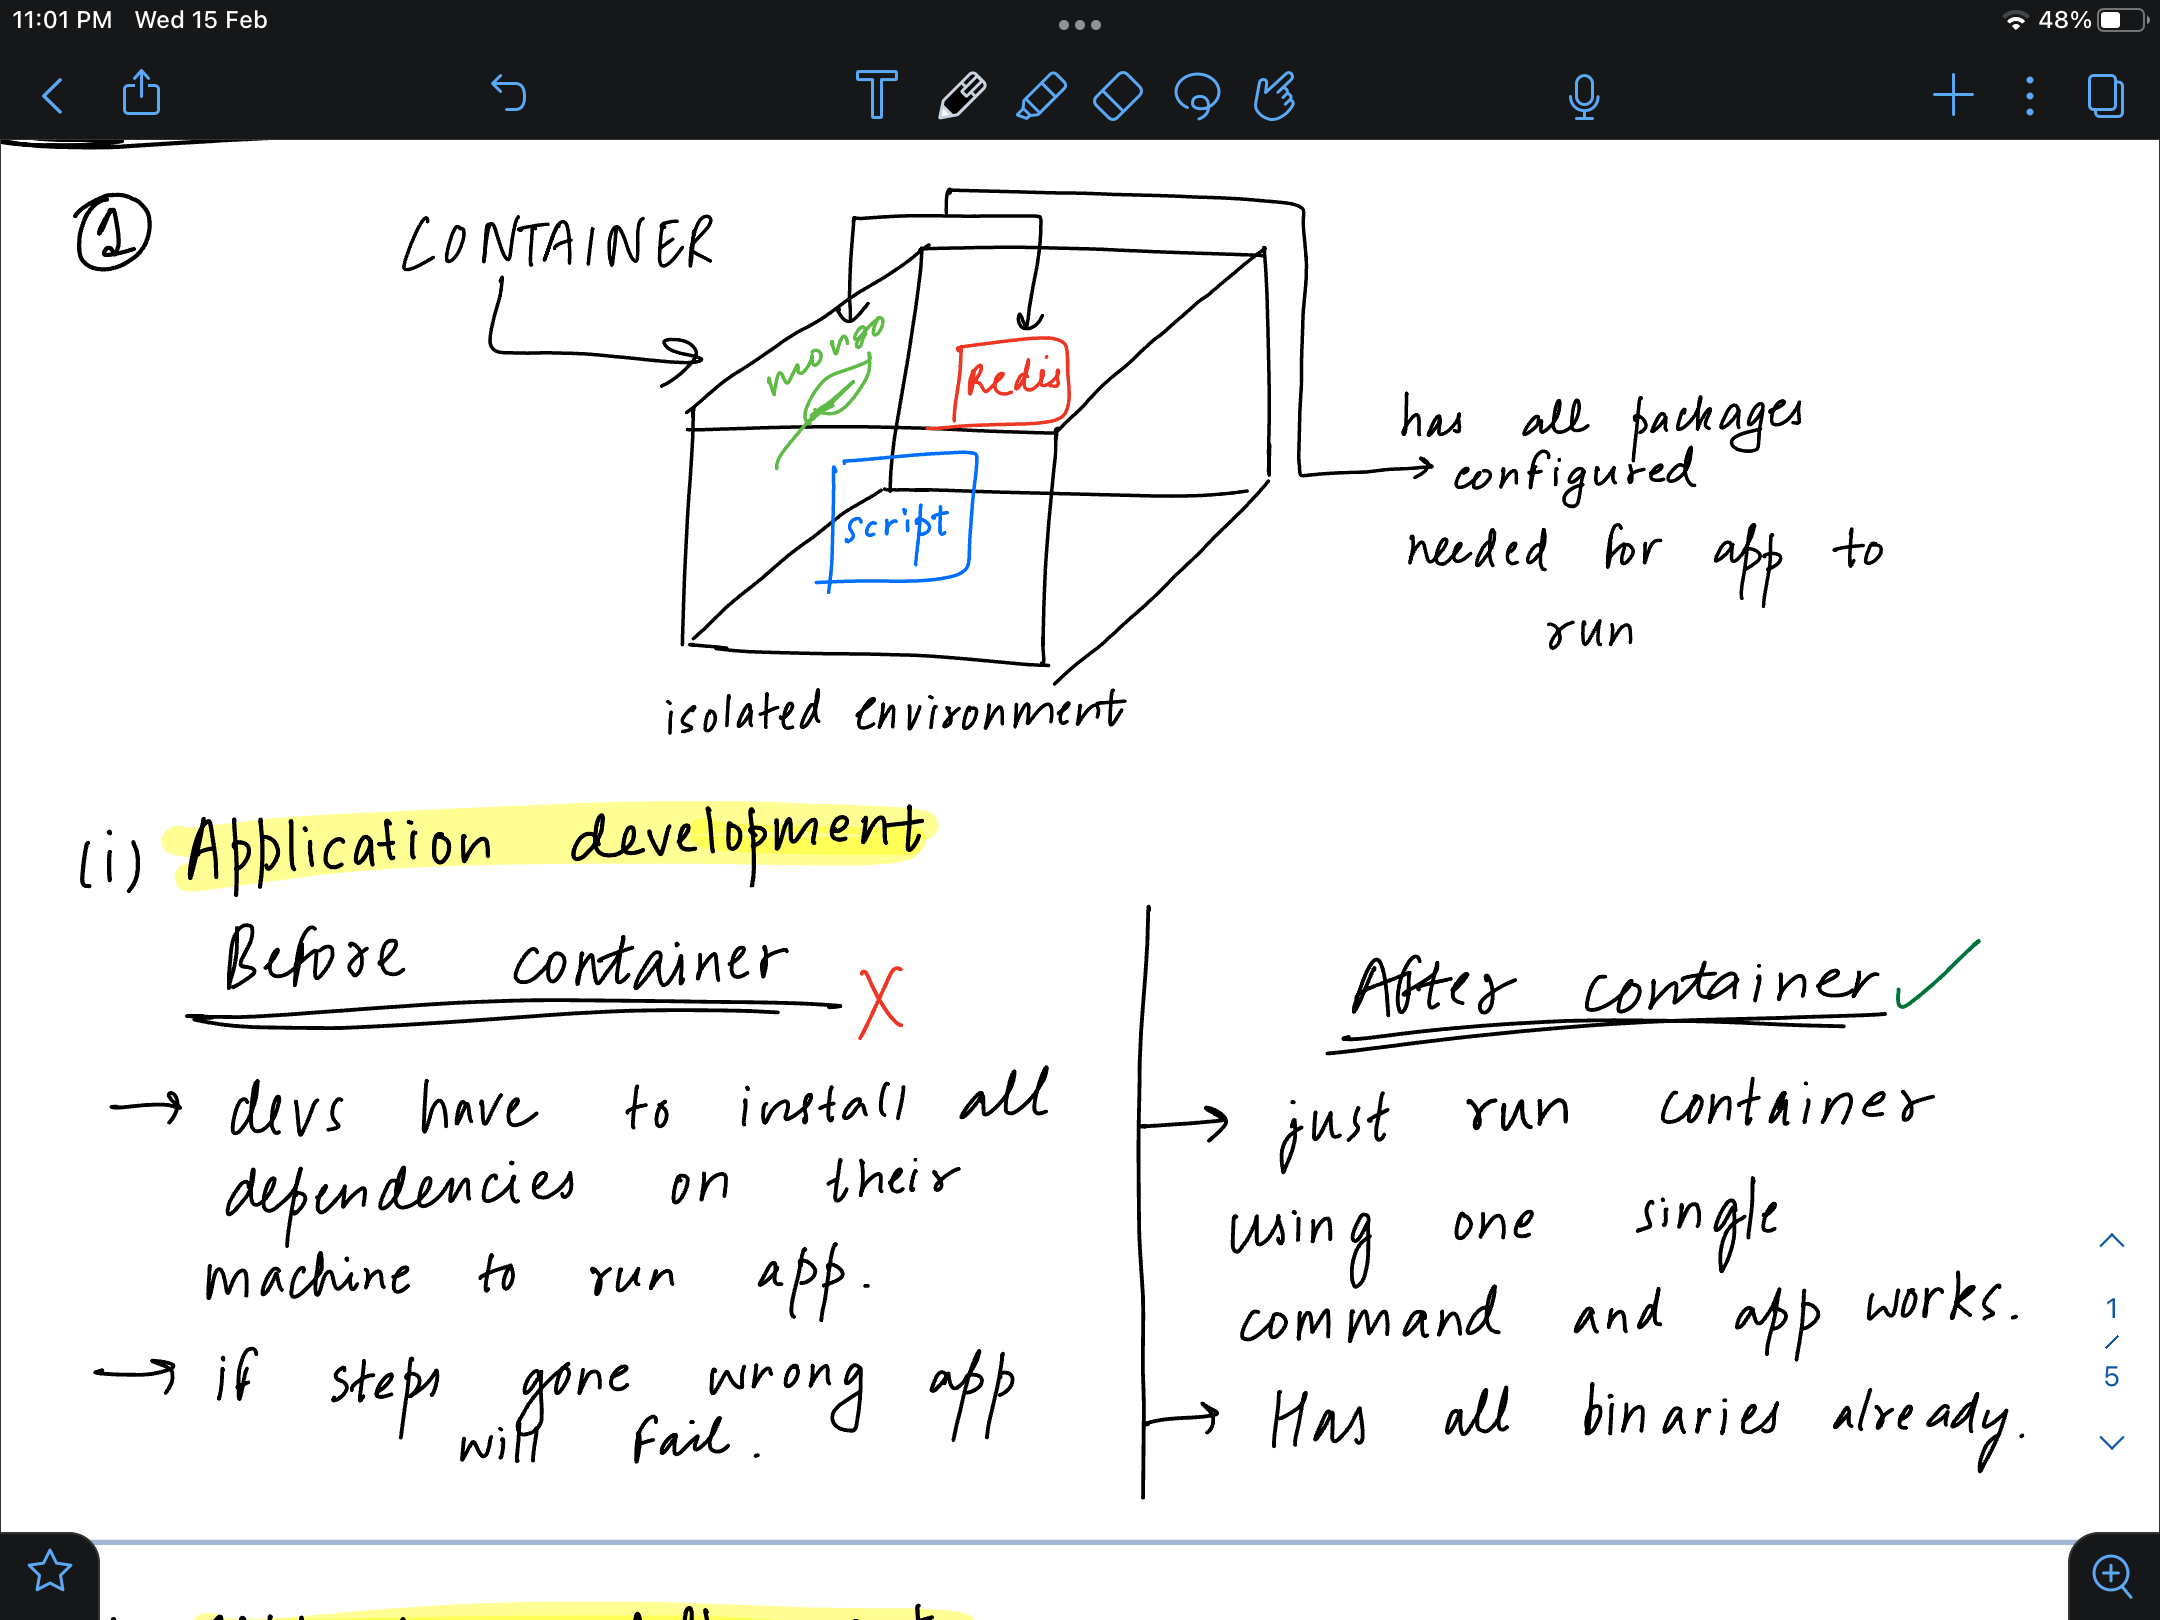 11:01 PM Wed 15 Feb
48%
T
1
CONTAINER
mongo
Redis
script
has all packages
configured
needed for app to
run
isolated environment
(i) Application development
Before container X
devs have to install all
dependencies on their
machine to run app.
if steps gone wrong app
will fail.
After container
just run container
using one single
command and app works.
Has all binaries already.
1
/
5